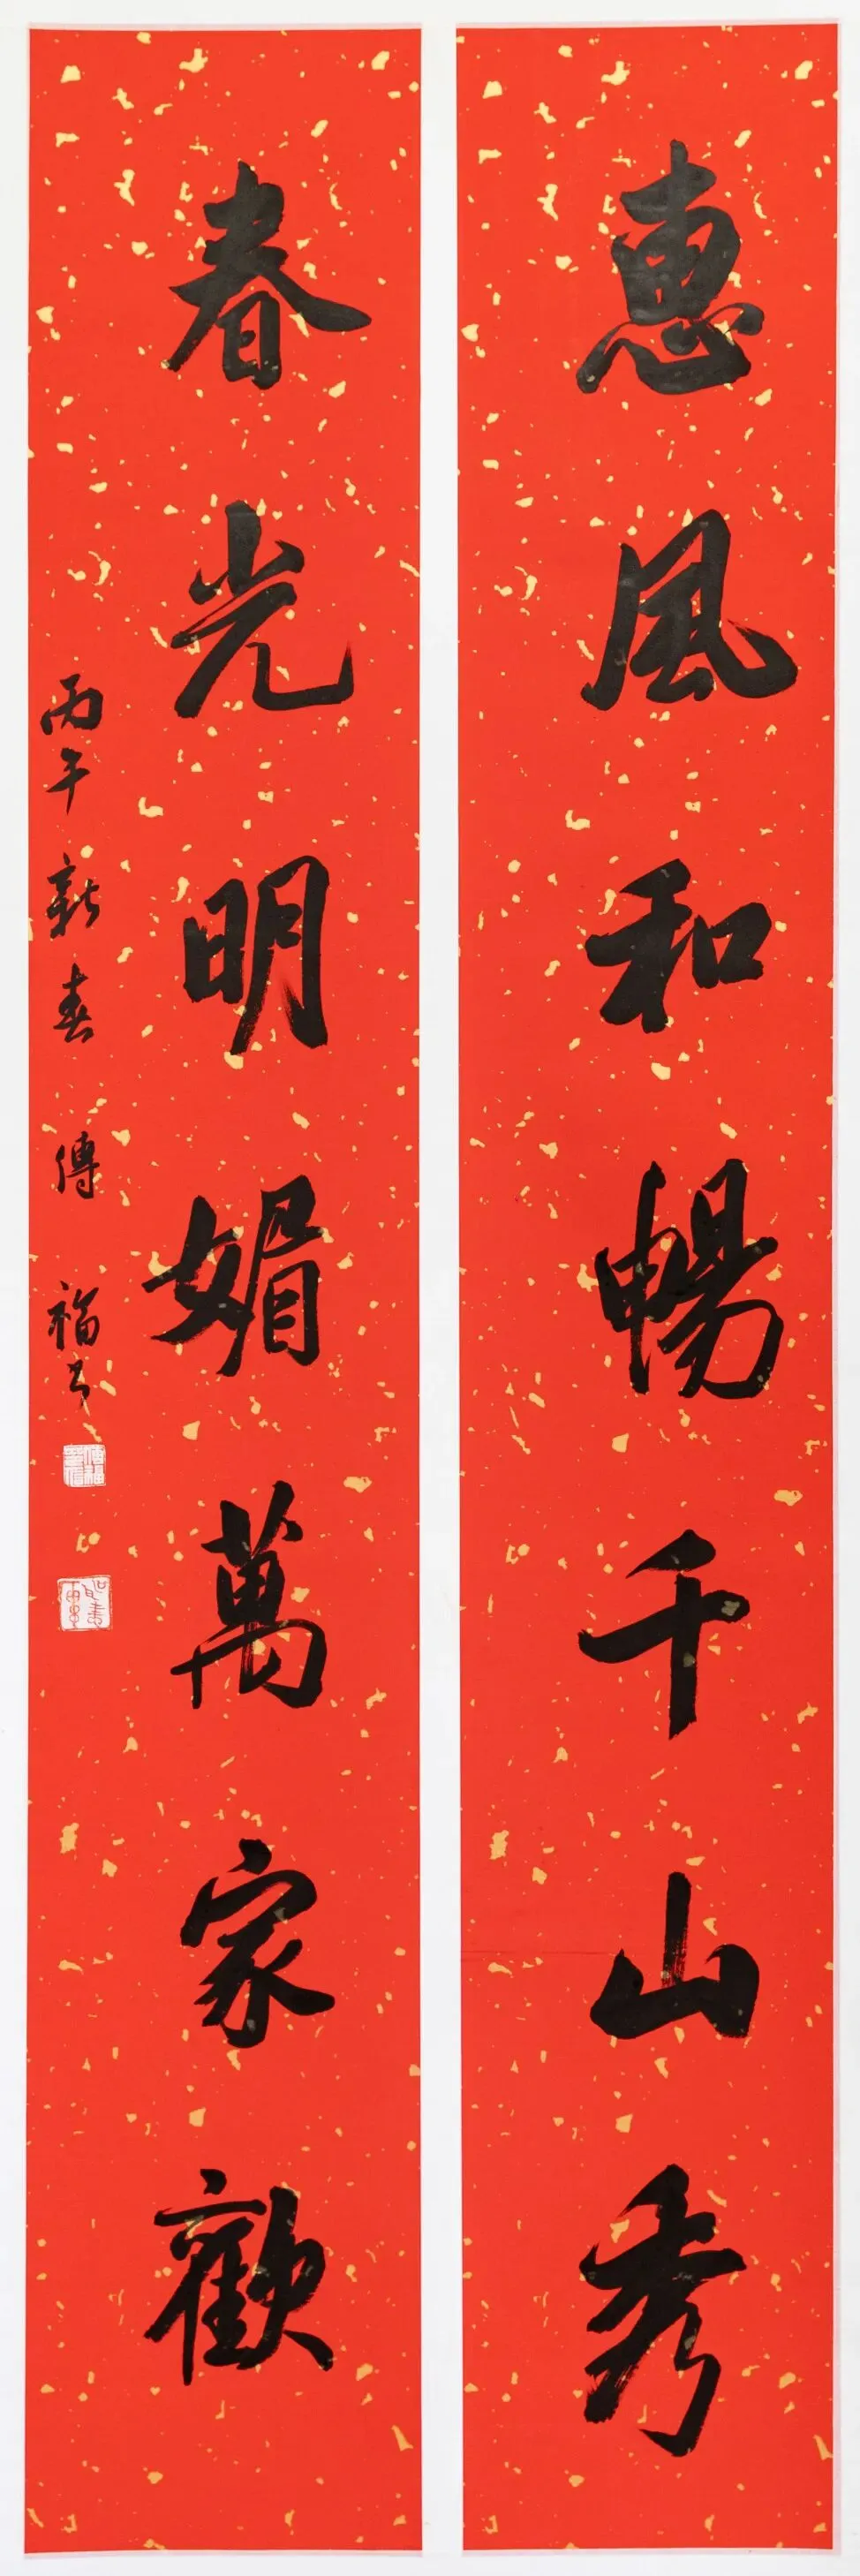 惠風和暢千山秀
春光明媚萬家歡
丙午新春 傅福書